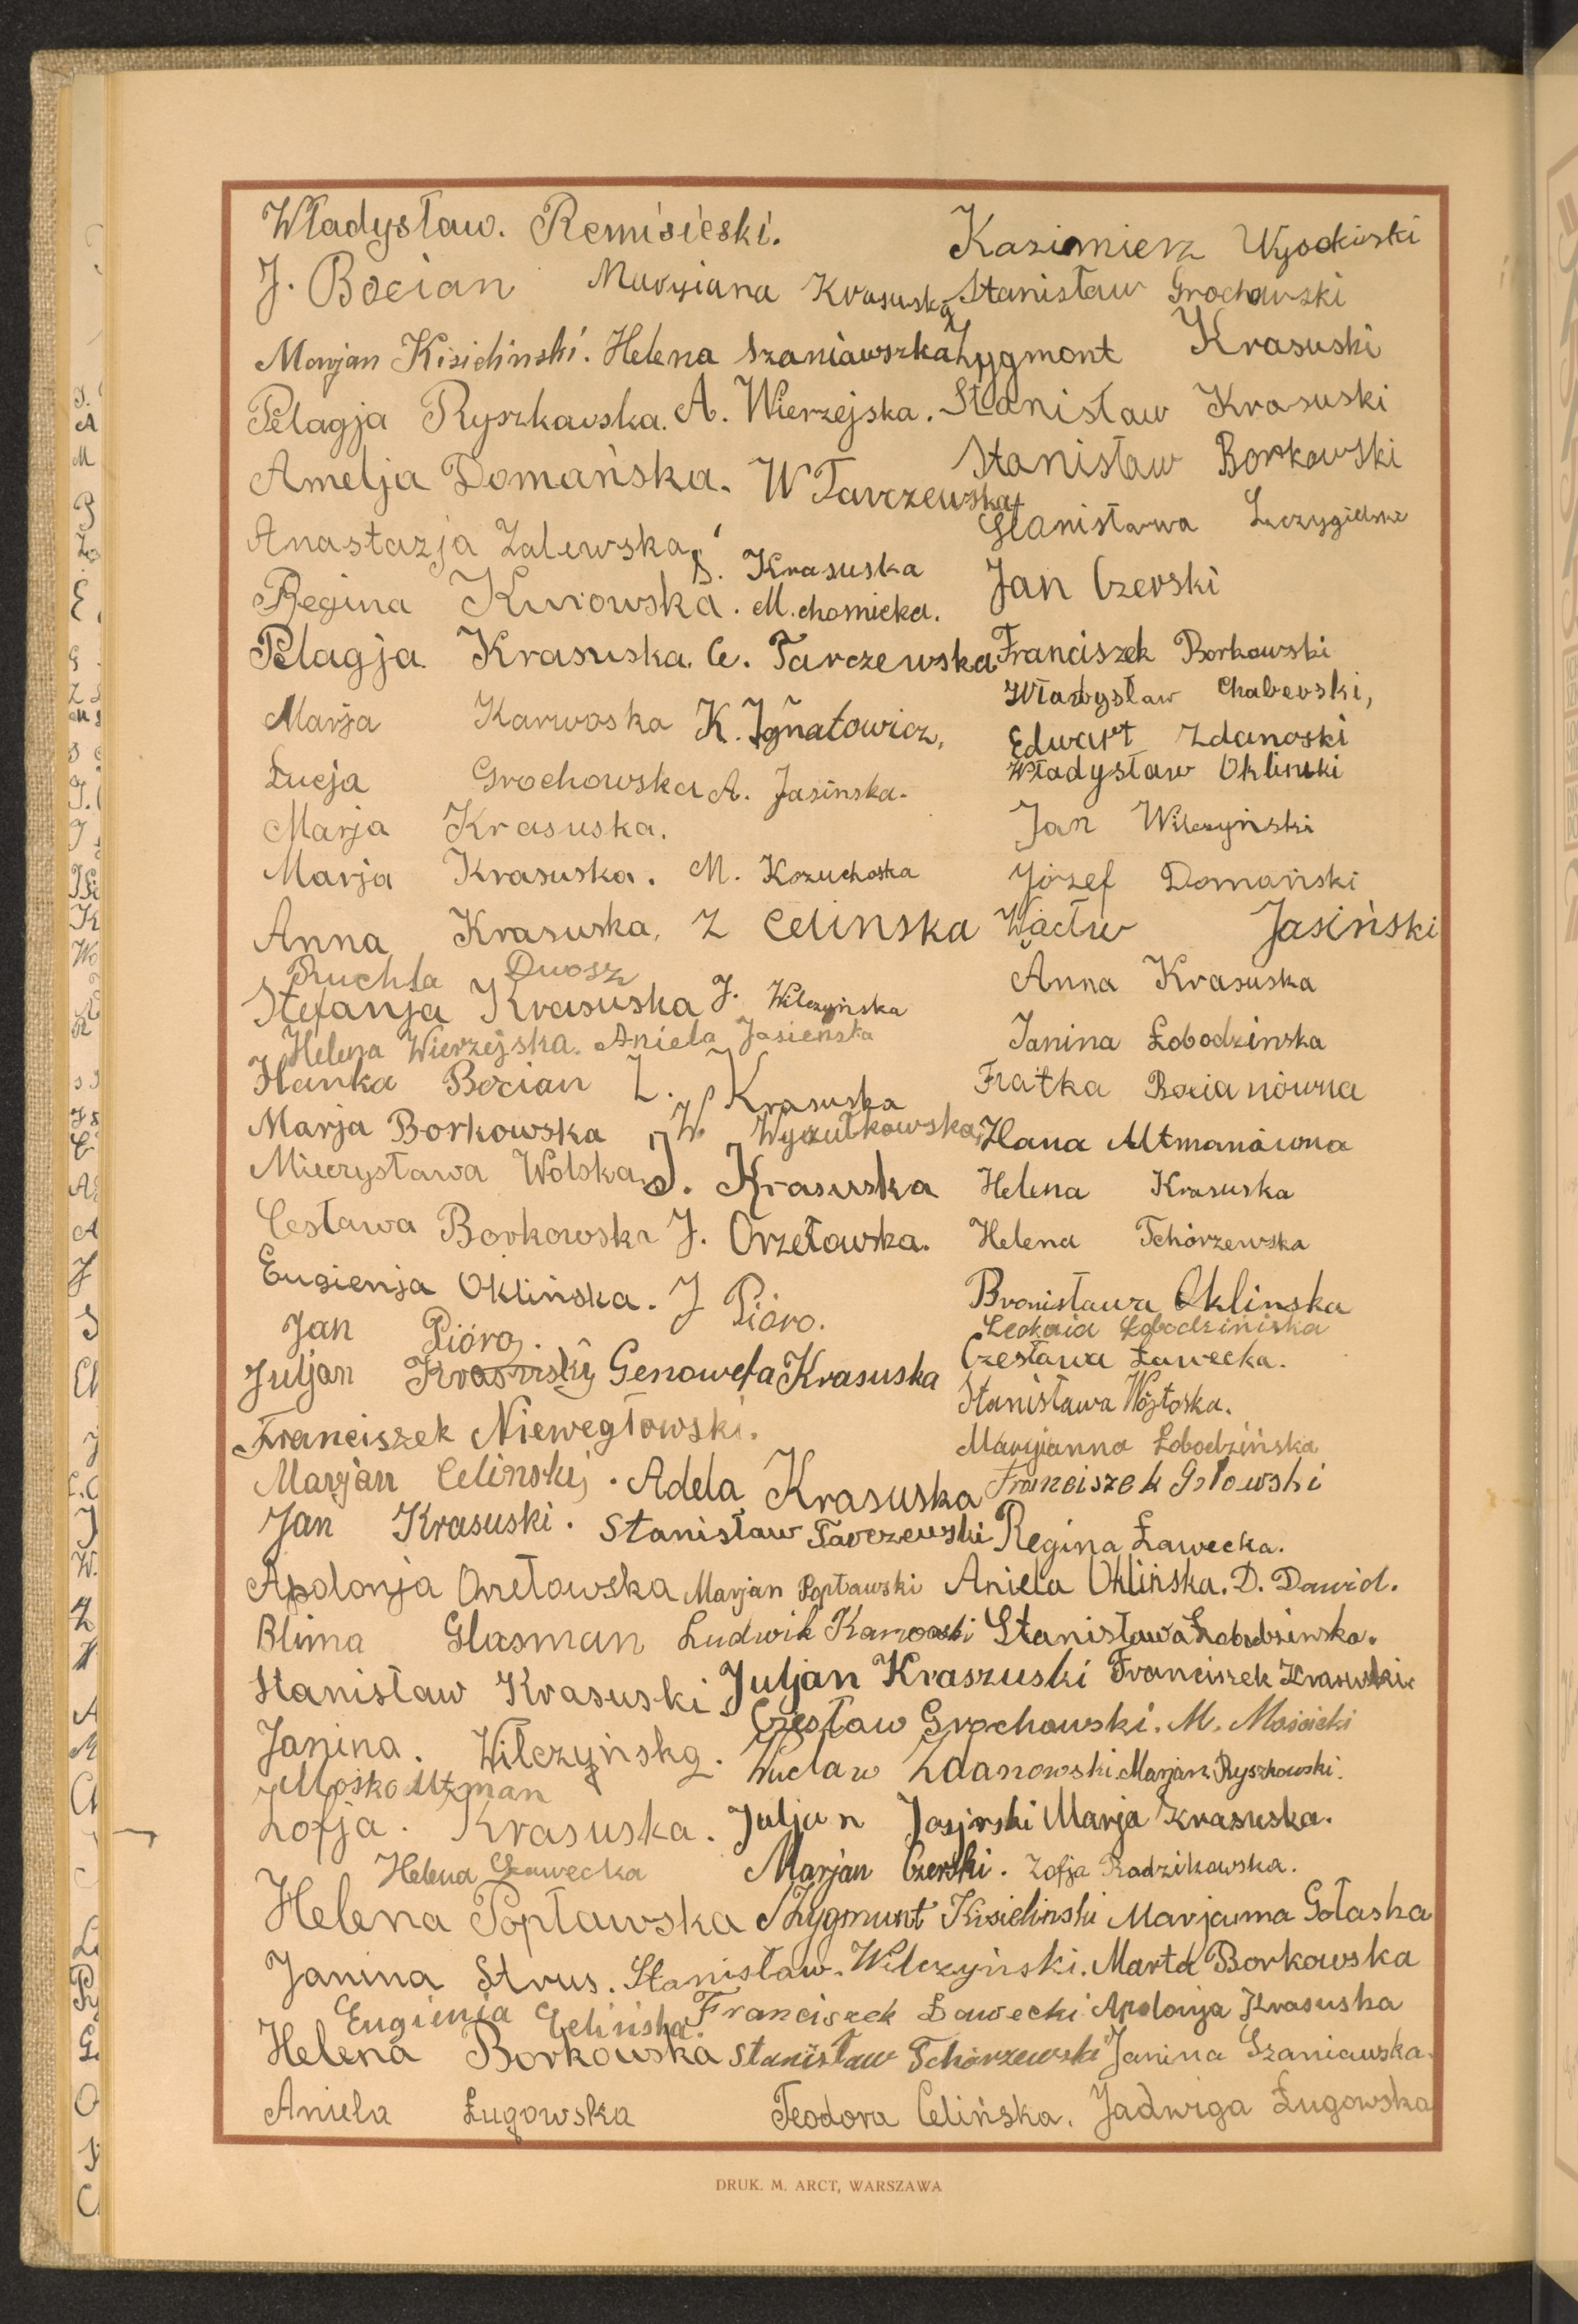 Władysław. Remisieski. Kazimierz Wysokiński
J. Bocian Maryiana Krasuska Stanisław Grochowski
Marjan Kisieliński. Helena Szaniawszka Zygmont Krasuski
Pelagja Ryszkawska. A. Wierzejska. Stanisław Krasuski
Amelja Domańska. W Tarczewska Stanisław Borkowski
Anastazja Zalewska Stanisława
S. Krasuska
Regina Kurowska. M. chomicka. Jan Czerski
Pelagja Krasuska. C. Tarczewska Franciszek Borkowski
Władysław Chaberski,
Marja Karwoska K. Ignatowicz, Edwart Zdanoski
Łucja Grochowska A. Jasinska. Władysław Oklinski
Marja Krasuska. Jan Wilczyński
Marja Krasuska. M. Kozuchoska Józef Domański
Anna Krasuska, Z Celinska Wacłw Jasiński
Ruchla Dwosz
Stefanja Krasuska J. Wilczyńska Anna Krasuska
Helena Wierzejska. Aniela Jasieńska Janina Łobodzinska
Hanka Bocian Z. Krasuska Frajtka Bocianówna
Marja Borkowska W Hana Altmanówna
Mieczysława Wolska J. Krasuska Helena Krasuska
Cesława Borkowska J. Orzełowska. Helena Tchórzewska
Eugienja Oklińska. J Pióro. Bronisława Oklinska
Jan Pióro. Leokaia Łobodzińiska
Juljan Krasuski Genowefa Krasuska Czesława Ławecka.
Stanisława Wójtoska.
Franciszek Niewegłowski. Maryjanna Łobodzińska
Marjan Celinski. Adela Krasuska Franciszek
Jan Krasuski. Stanisław Tarczewski Regina Ławecka.
Apolonja Orzełowska Marjan Popławski Aniela Oklińska. D. Dawid.
Blima Glasman Ludwik Karwoski Stanisława Łobodzinska.
Stanisław Krasuski Juljan Kraszuski Franciszek Krasuski
Czesław Grochowski. M. Mościcki
Janina. Wilczyńska. Wacław Zdanowski. Marjan Ryszkowski.
Mośko Altman
Zofja. Krasuska. Juljan Jasjnski Marja Krasuska.
Helena Ławecka Marjan Czerski. Zofja Radzikowska.
Helena Popławska Zygmunt Kisielinski Marjanna Gołaska
Janina Strus. Stanisław. Wilczyński. Marta Borkowska
Eugienia Celińska. Franciszek Ławecki Apolonja Krasuska
Helena Borkowska Stanisław Tchórzewski Janina Szaniawska.
Aniela Ługowska Teodora Celińska. Jadwiga Ługowska
DRUK. M. ARCT, WARSZAWA